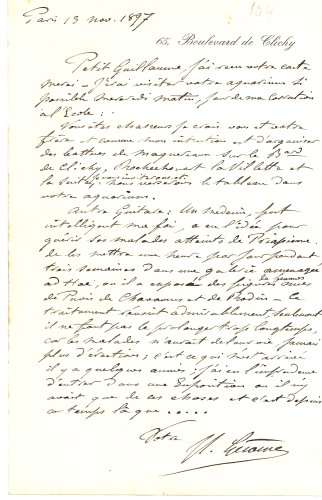 Paris 13 nov. 1897
65, Boulevard de Clichy
Petit Guillaume, j'ai reçu votre carte
merci - J'irai visiter votre aquarium si
possible mercredi matin, jour de ma correction
à l'Ecole:
Vous êtes chasseur je crois vous et votre
frère et comme mon intention est d'organiser
des battues de maquereaux sur le Bard
de Clichy, Rochechouart la Villette et
la suite, nous verserons le tableau dans
votre aquarium.
Autre Guitare: Un médecin, fort
intelligent ma foi, a eu l'idée pour
guérir ses malades atteints de Priapisme
de les mettre une heure par jour pendant
trois semaines dans une galerie aménagée
ad hoc, où il a exposé des figures nues
de femmes
de Puvis de Chavannes et de Rodin - Ce
traitement réussit admirablement, seulement
il ne faut pas le prolonger trop longtemps,
car les malades n'auraient de leur vie jamais
plus d'érections; c'est ce qui m'est arrivé
il y a quelques années; j'ai eu l'imprudence
d'entrer dans une Exposition où il n'y
avait que de ces choses et c'est depuis
ce temps là que .....
Votre